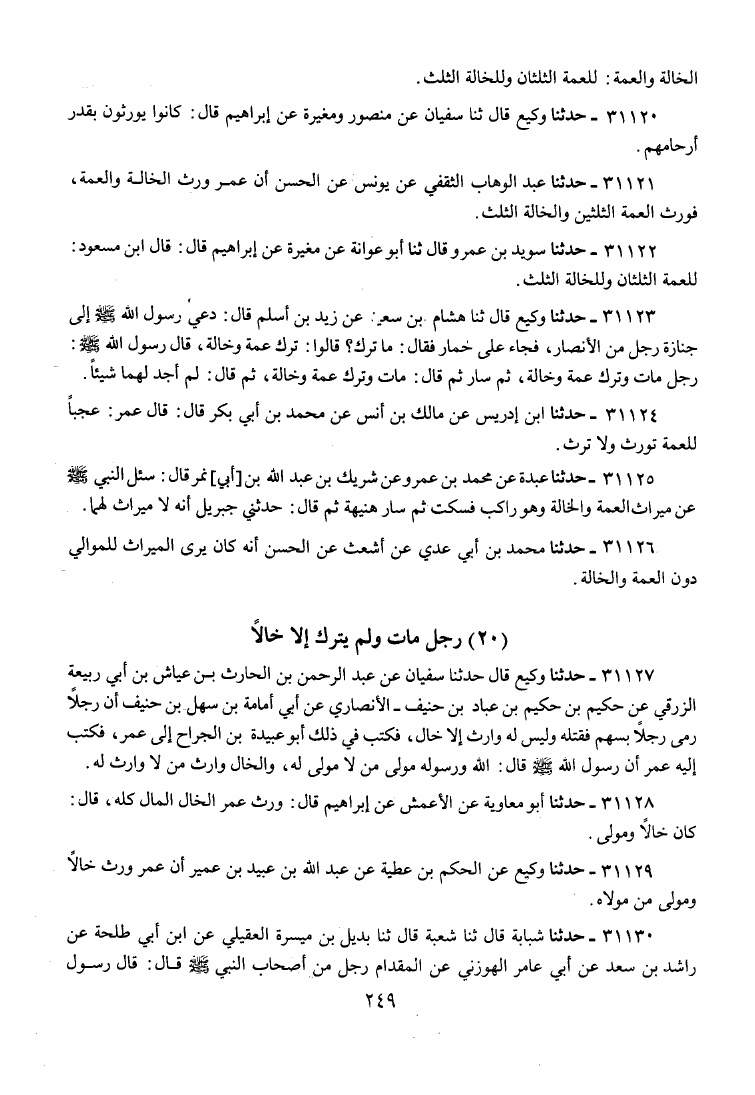 الخالة والعمة: للعمة الثلثان وللخالة الثلث.
٣١١٢٠ ـ حدثنا وكيع قال ثنا سفيان عن منصور ومغيرة عن إبراهيم قال: كانوا يورثون بقدر
أرحامهم.
٣١١٢١ ـ حدثنا عبد الوهاب الثقفي عن يونس عن الحسن أن عمر ورث الخالة والعمة،
فورث العمة الثلثين والخالة الثلث.
٣١١٢٢ ـ حدثنا سويد بن عمرو قال ثنا أبو عوانة عن مغيرة عن إبراهيم قال: قال ابن مسعود:
للعمة الثلثان وللخالة الثلث.
٣١١٢٣ ـ حدثنا وكيع قال ثنا هشام بن سعد عن زيد بن أسلم قال: دعي رسول الله ﷺ إلى
جنازة رجل من الأنصار، فجاء على خمار فقال: ما ترك؟ قالوا: ترك عمة وخالة، قال رسول الله ﷺ:
رجل مات وترك عمة وخالة، ثم سار ثم قال: مات وترك عمة وخالة، ثم قال: لم أجد لهما شيئاً.
٣١١٢٤ ـ حدثنا ابن إدريس عن مالك بن أنس عن محمد بن أبي بكر قال: قال عمر: عجباً
للعمة تورث ولا ترث.
٣١١٢٥ ـ حدثنا عبدة عن محمد بن عمرو عن شريك بن عبد الله بن [أبي] نمر قال: سئل النبي ﷺ
عن ميراث العمة والخالة وهو راكب فسكت ثم سار هنيهة ثم قال: حدثني جبريل أنه لا ميراث لهما.
٣١١٢٦ ـ حدثنا محمد بن أبي عدي عن أشعث عن الحسن أنه كان يرى الميراث للموالي
دون العمة والخالة.
(٢٠) رجل مات ولم يترك إلا خالاً
٣١١٢٧ ـ حدثنا وكيع قال حدثنا سفيان عن عبد الرحمن بن الحارث بن عياش بن أبي ربيعة
الزرقي عن حكيم بن حكيم بن عباد بن حنيف ـ الأنصاري عن أبي أمامة بن سهل بن حنيف أن رجلاً
رمى رجلاً بسهم فقتله وليس له وارث إلا خال، فكتب في ذلك أبو عبيدة بن الجراح إلى عمر، فكتب
إليه عمر أن رسول الله ﷺ قال: الله ورسوله مولى من لا مولى له، والخال وارث من لا وارث له.
٣١١٢٨ ـ حدثنا أبو معاوية عن الأعمش عن إبراهيم قال: ورث عمر الخال المال كله، قال:
كان خالاً ومولى.
٣١١٢٩ ـ حدثنا وكيع عن الحكم بن عطية عن عبد الله بن عبيد بن عمير أن عمر ورث خالاً
ومولى من مولاه.
٣١١٣٠ ـ حدثنا شبابة قال ثنا شعبة قال ثنا بديل بن ميسرة العقيلي عن ابن أبي طلحة عن
راشد بن سعد عن أبي عامر الهوزني عن المقدام رجل من أصحاب النبي ﷺ قال: قال رسول
٢٤٩